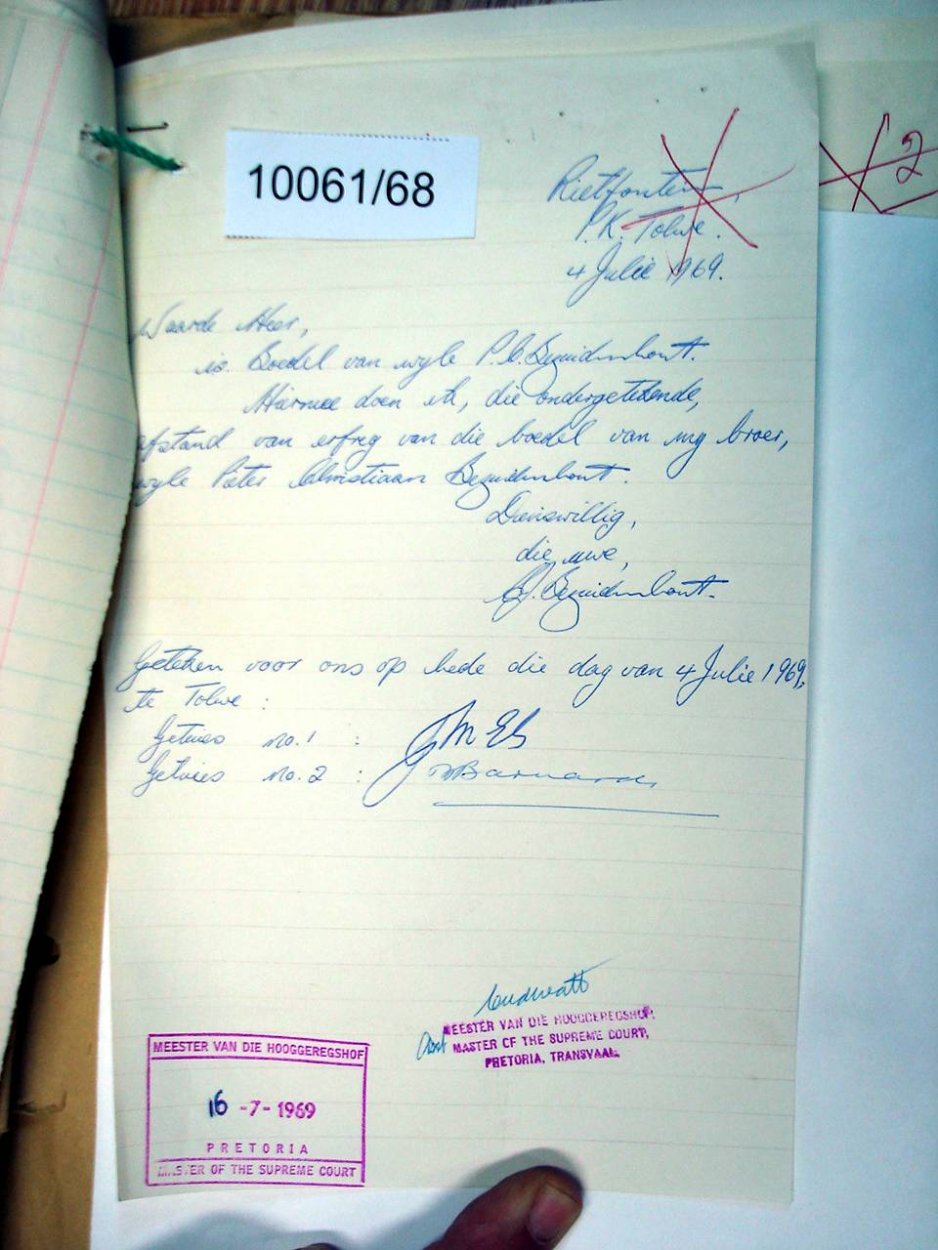 10061/68
2
Rietfontein,
P.K. Tolwe.
4 Julie 1969.
Waarde Heer,
is. Boedel van wyle P.C. Bezuidenhout.
Hiermee doen ek, die ondergetekende,
afstand van erfreg van die boedel van my broer,
wyle Pieter Christiaan Bezuidenhout.
Dienswillig,
die uwe,
Bezuidenhout.
Geteken voor ons op hede die dag van 4 Julie 1969,
te Tolwe :
Getuies no. 1 :
Getuies no. 2 : Barnard
MEESTER VAN DIE HOOGGEREGSHOF,
Asst MASTER OF THE SUPREME COURT,
PRETORIA, TRANSVAAL.
MEESTER VAN DIE HOOGGEREGSHOF
16 -7- 1969
PRETORIA
MASTER OF THE SUPREME COURT